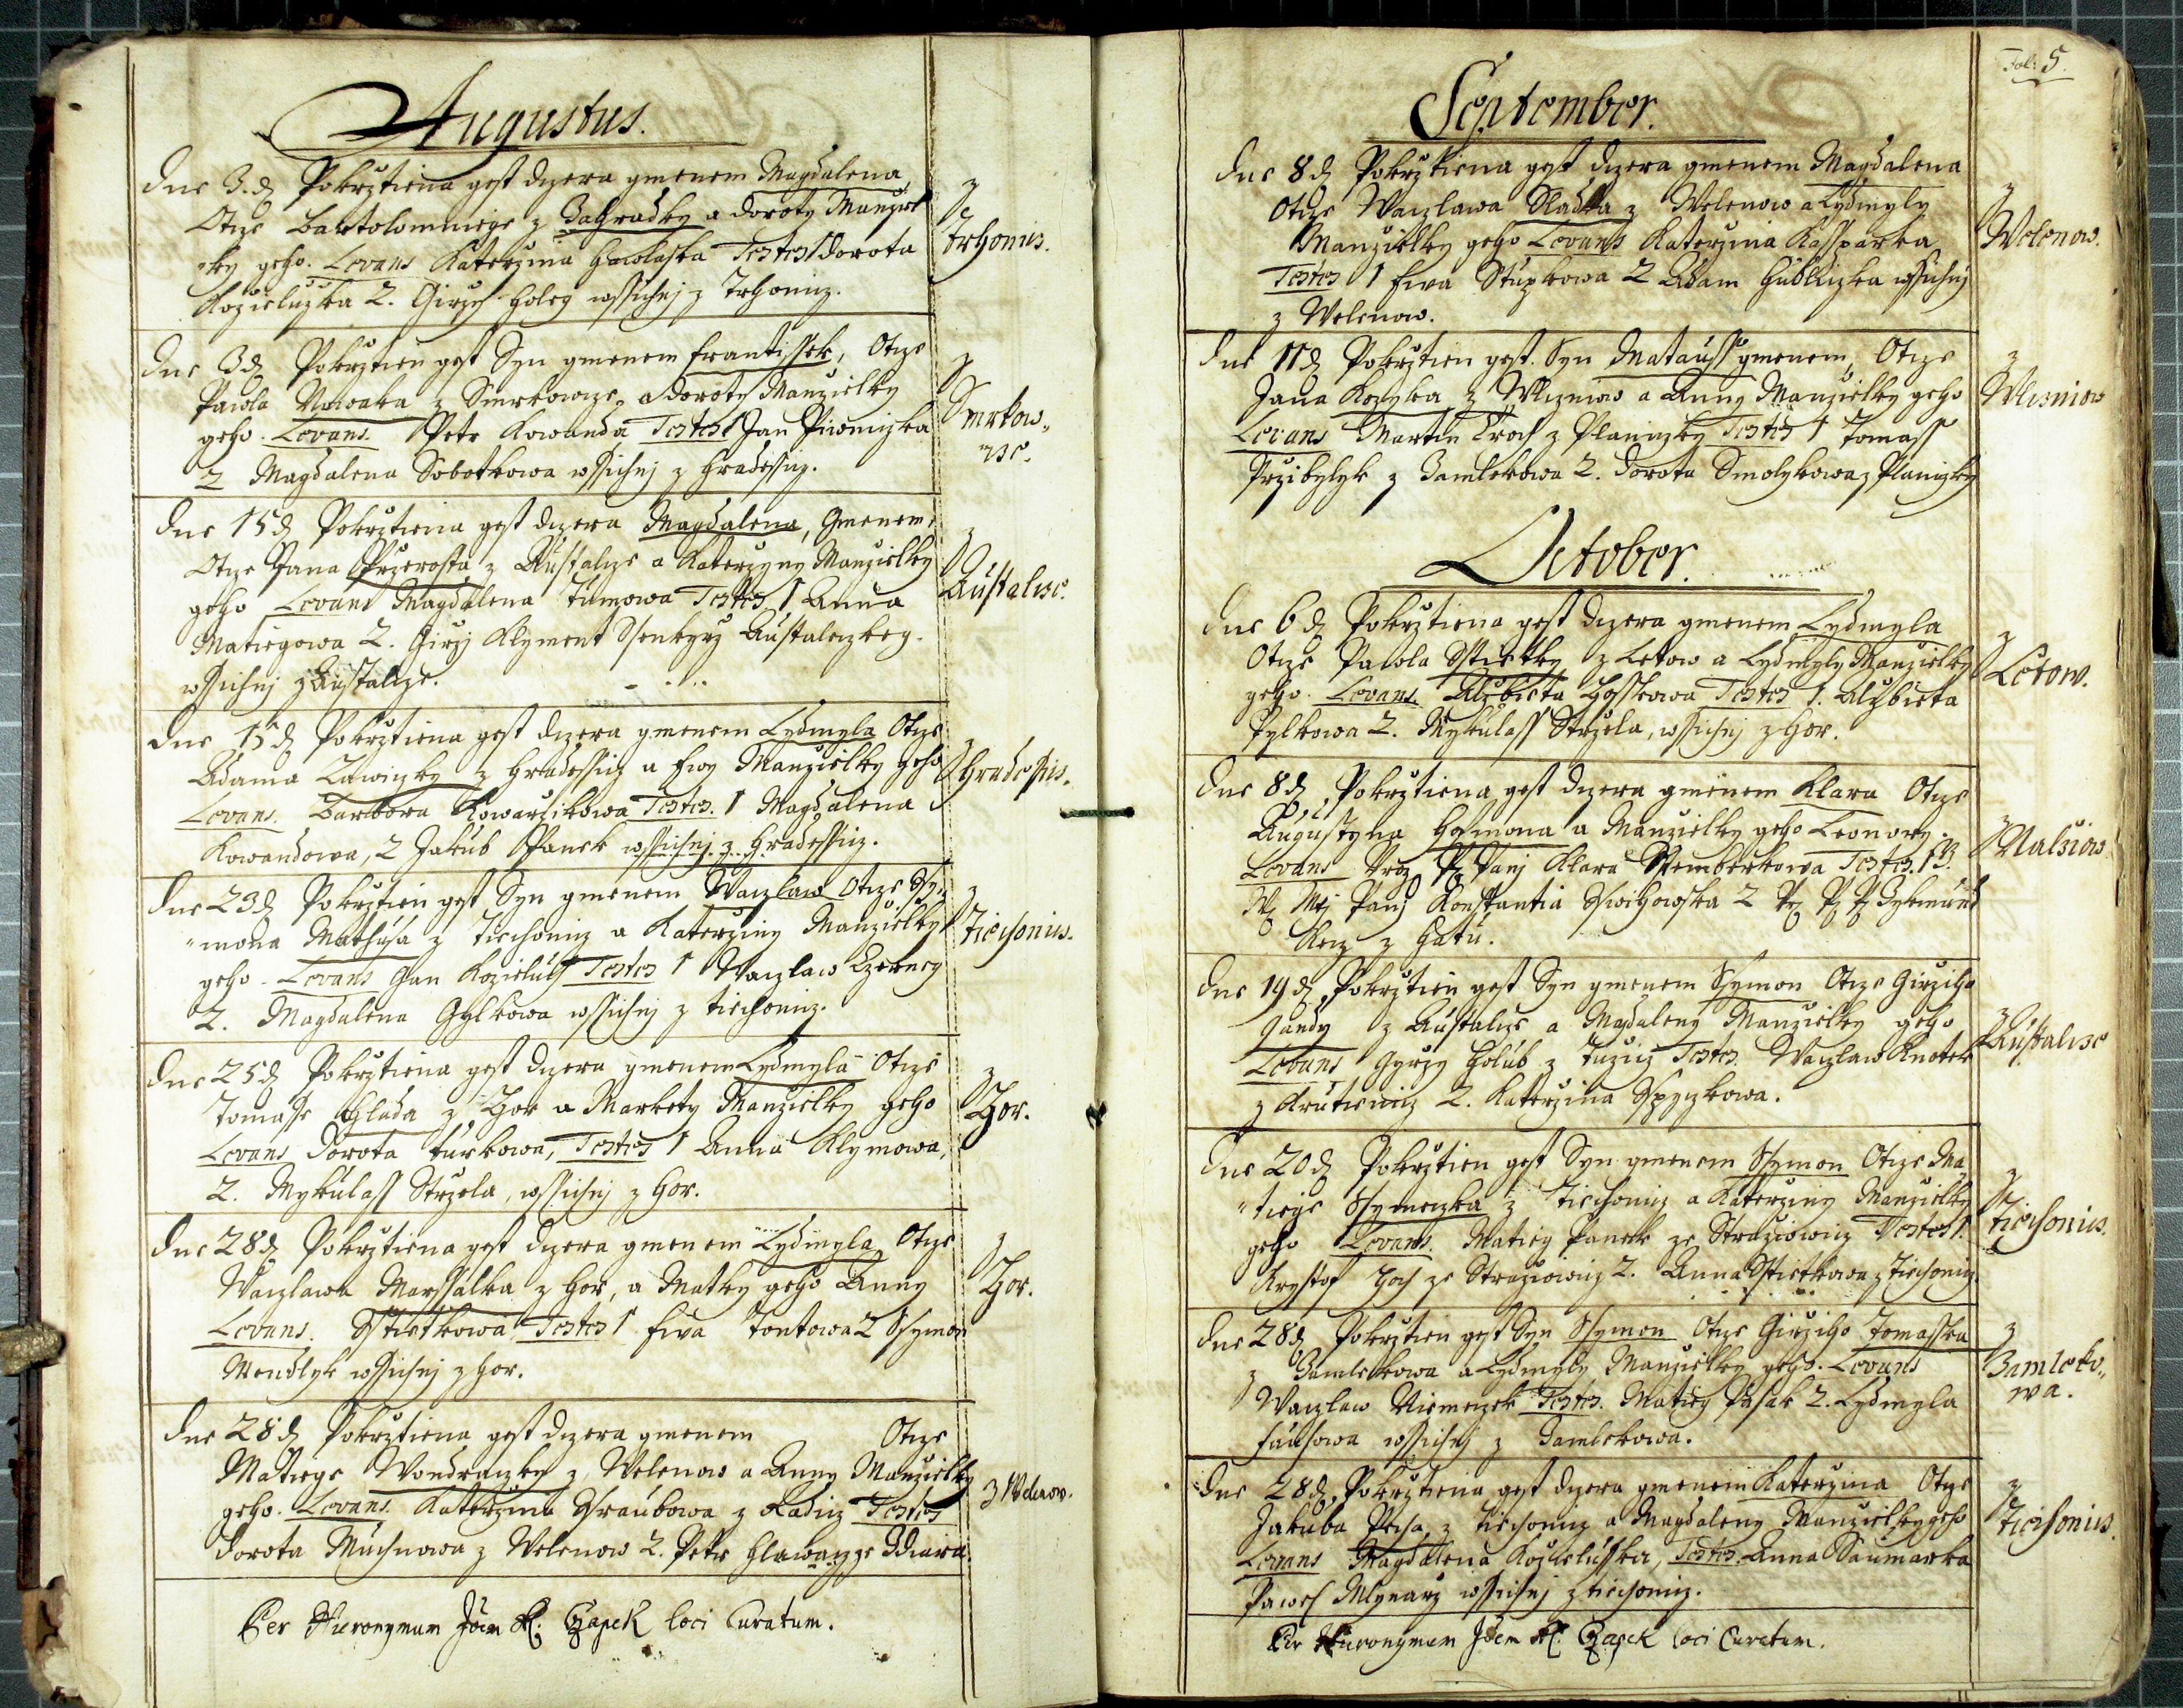 Augustus.
Dne 3. d. Pokrztiena gest dczera gmenem Magdalena
Otcze Bartolommiege z Zahradky a Doroty Manziel
"ky geho. Levans Katerzina Hawlaska Testes 1 Dorota
Kozieluzka 2. Girzych Holey wssichnj z Trhonicz.
z
Trhonic.
Dne 3 d. Pokrztien gest Syn gmenem Frantissek, Otcze
Pawla Nowaka z Smrkowcze, a Doroty Manzielky
geho. Levans. Petr Kowanda Testes 1 Jan Piwniczka
2 Magdalena Sobotkowa wssichnj z Hradessicz.
z
Smrkow„
cze.
Dne 15 d. Pokrztiena gest dczera Magdalena, Gmenem,
Otcze Jana Przerosta z Austalcze a Katerzyny Manzielky
geho Levans Magdalena Tumowa Testes 1 Anna
Matiegowa 2. Girzj Klyment Ssenkyrz Austaleczkey.
wssichnj z Austalcze.
z
Austalcze.
Dne 15 d. Pokrztiena gest dczera gmenem Lydmyla Otcze
Adama Zawiczky z Hradessicz a Ewy Manzielky geho
Levans. Barbora Kowarzikowa Testes. 1 Magdalena
Kowandowa, 2 Jakub Panek wssichnj z Hradessicz.
z
Hradessic.
Dne 23 d. Pokrztien gest Syn gmenem Waczlaw Otcze Ssy„
"mona Mathusa z Tiechonicz a Katerziny Manzielky
geho. Levans Jan Kozieluh Testes 1 Waczlaw Czerney
2. Magdalena Gylkowa wssichnj z Tiechonicz.
z
Tiechonic.
Dne 25 d. Pokrztiena gest dczera gmenem Lydmyla Otcze
Tomasse Hlada z Hor a Markety Manzielky geho
Levans Dorota Turkowa, Testes 1 Anna Klymowa,
2. Mykulass Strzela, wssichnj z Hor.
z
Hor.
Dne 28 d. Pokrztiena gest dczera gmenem Lydmyla Otcze
Waczlawa Marssalka z Hor, a Matky geho Anny
Levans. Sstietkowa Testes 1 Ewa Tontowa 2 Ssymon
Wendlyk wssichnj z Hor.
z
Hor.
Dne 28 d. Pokrztiena gest dczera gmenem Otcze
Matiege Wondraczky z Welenow a Anny Manzielky
geho. Levans. Katerzina Straubowa z Kadicz Testes
Dorota Muchnowa z Welenow 2. Petr Hlawacz ze
z Welenow.
Per Hieronymum Joem Czapek loci Curatum.
Fol: 5.
September.
Dne 8 d. Pokrztiena gest dczera gmenem Magdalena
Otcze Waczlawa Sladka z Welenow a Lydmyly
Manzielky geho Levans Katerzina Kassparka
Testes 1 Ewa Stupkowa 2 Adam Hubkiczka wssichnj
z Welenow.
z
Welenow.
Dne 11 d. Pokrztien gest Syn Matauss gmenem, Otcze
Jana Kozyka z Wliczniow a Anny Manzielky geho
Levans Martin Troch z Planiczky Testes 1 Tomass
Przibylyk z Zamlekowa 2. Dorota Smolykowa z Planiczky
z
Wlicniow
October.
Dne 6 d. Pokrztiena gest dczera gmenem Lydmyla
Otcze Pawla Sstietky z Letow a Lydmyly Manzielky
geho. Levans. Alzbieta Hosskowa Testes 1. Alzbieta
Pylkowa 2. Mykulass Strzela, wssichnj z Hor.
z
Letow.
Dne 8 d. Pokrztiena gest dczera gmenem Klara Otcze
Augustyna Hofmona a Manzielky geho Leonory.
Levans Vroz Panj Klara Stemberkowa Testes. 1
Panj Konstantia Swihowska 2 Zykmund
Kecz z Hatu.
z
Nalziow
Dne 19 d. Pokrztien gest Syn gmenem Ssymon Otcze Girziho
Jandy z Austalcze a Magdaleny Manzielky geho
Levans Gyrzy Holub z Tuzicz Testes. Waczlaw Knotek
z Krutienicz 2. Katerzina Sspyczkowa.
z
Austalcze
Dne 20 d. Pokrztien gest Syn gmenem Ssymon Otcze Ma
"tiege Ssymeczka z Tiechonicz a Katerziny Manzielky
geho Levans. Matieg Panek ze Strazowicz Testes 1.
Krystof Hoch ze Strazowicz 2. Anna Sstietkowa z Tiechonicz
z
Tiechonic.
Dne 28 d. Pokrztien gest Syn Ssymon Otcze Girziho Tomasska
z Zamlekowa a Lydmyly Manzielky geho. Levans
Waczlaw Niemeczek Testes. Matieg Pesak 2. Lydmyla
Fausowa wssichnj z Zamlekowa.
z
Zamleko„
wa.
Dne 28 d. Pokrztiena gest dczera gmenem Katerzina Otcze
Jakuba Pecha z Tiechonicz a Magdaleny Manzielky geho
Levans Magdalena Kozielusska, Testes. Anna Saumarka
Pawel Mlynarz wssichnj z Tiechonicz.
z
Tiechonic.
Per Hieronymum Joem Czapek loci Curatum.